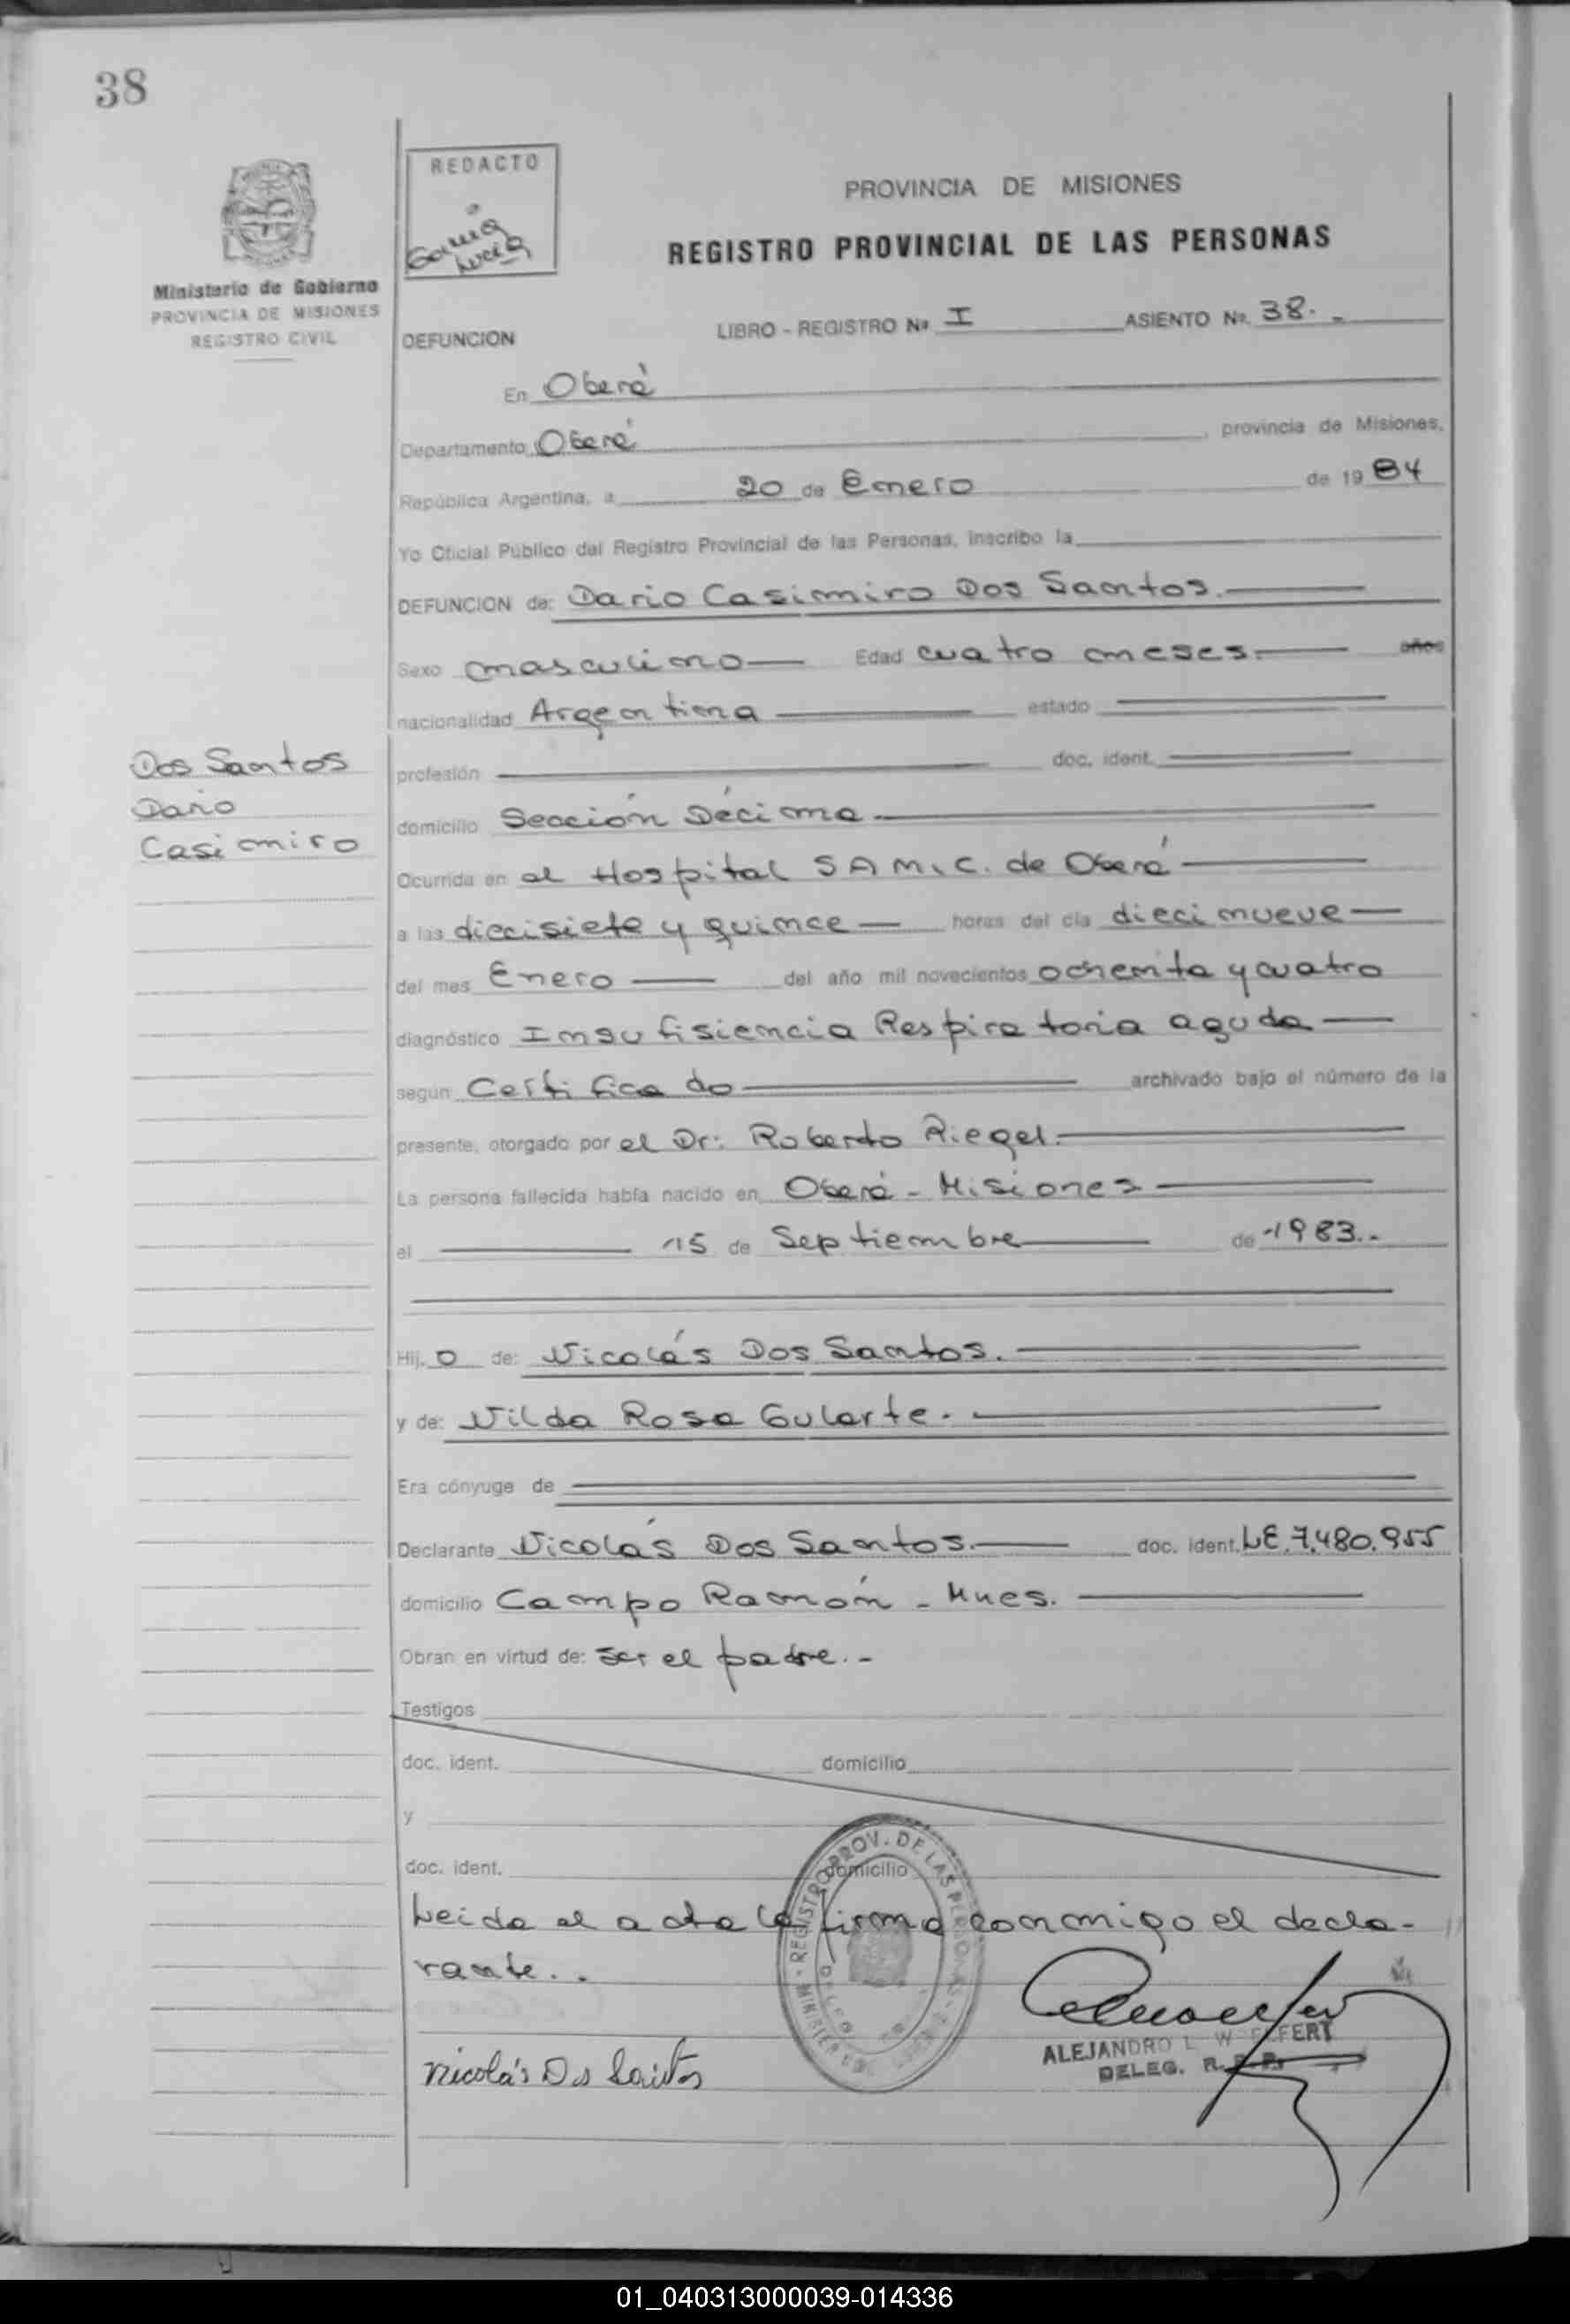 38
REDACTO
García
Lucia
PROVINCIA DE MISIONES
REGISTRO PROVINCIAL DE LAS PERSONAS
Ministerio de Gobierno
PROVINCIA DE MISIONES
REGISTRO CIVIL
DEFUNCION LIBRO - REGISTRO Nº I ASIENTO Nº. 38.-
En Oberá
Departamento Oberá, provincia de Misiones,
República Argentina, a 20 de Enero de 1984
Yo Oficial Público del Registro Provincial de las Personas, inscribo la
DEFUNCION de: Dario Casimiro Dos Santos.
Sexo masculino Edad cuatro meses. años
nacionalidad Argentina estado
Dos Santos
Dario
Casimiro
profesión doc. ident.
domicilio Sección Décima.
Ocurrida en el Hospital S A M.C. de Oberá
a las diecisiete y quince horas del día diecinueve
del mes Enero del año mil novecientos ochenta y cuatro
diagnóstico Insufisiencia Respiratoria aguda
según Certificado archivado bajo el número de la
presente, otorgado por el Dr: Roberto Riegel.
La persona fallecida había nacido en Oberá - Misiones
el 15 de Septiembre de 1983.-
Hij o de: Nicolás Dos Santos.
y de: Nilda Rosa Gularte.
Era cónyuge de
Declarante Nicolás Dos Santos. doc. ident. LE.7.480.955
domicilio Campo Ramón - Mnes.
Obran en virtud de: ser el padre.-
Testigos
doc. ident. domicilio
y
doc. ident. domicilio
Leida el acta la firma conmigo el decla-
rante..
REGISTRO PROV. DE LAS PERSONAS
Nicolás Ds Santos
ALEJANDRO L. W.
DELEG. R.
01_040313000039-014336